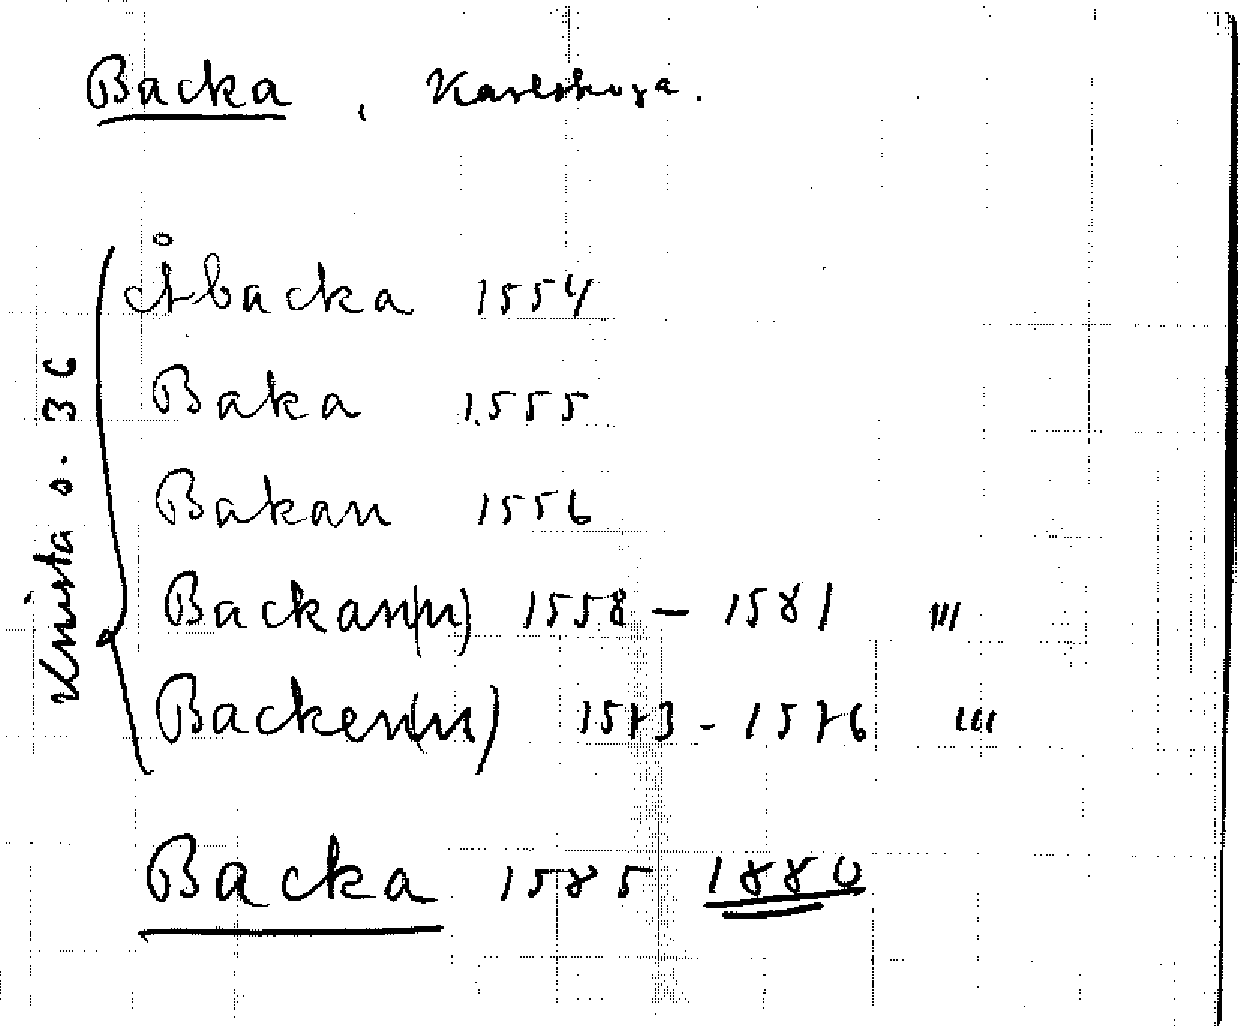 Backa, Karlskoga.
Åbacka 1554
Baka 1555
Bakan 1556
Backan(n) 1558 – 1581 III
Backen(n) 1573 - 1576 III
Knista s. 36
Backa 1585 1880